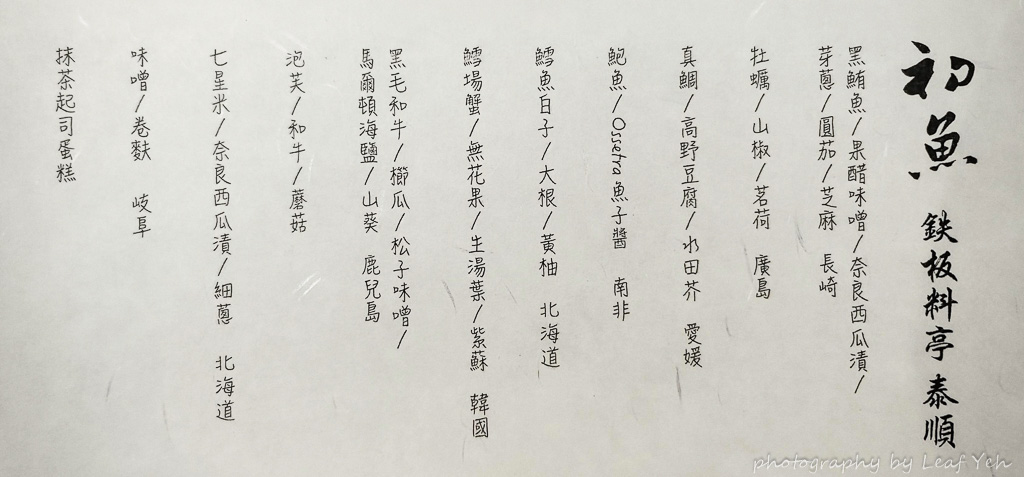 初魚 鉄板料亭 泰順
黑鮪魚/果醋味噌/奈良西瓜漬/
芽蔥/圓茄/芝麻 長崎
牡蠣/山椒/茗荷 廣島
真鯛/高野豆腐/水田芥 愛媛
鮑魚/Ossetra魚子醬 南非
鱈魚白子/大根/黃柚 北海道
鱈場蟹/無花果/生湯葉/紫蘇 韓國
黑毛和牛/櫛瓜/松子味噌/
馬爾頓海鹽/山葵 鹿兒島
泡芙/和牛/蘑菇
七星米/奈良西瓜漬/細蔥 北海道
味噌/卷麩 岐阜
抹茶起司蛋糕
photography by Leaf Yeh